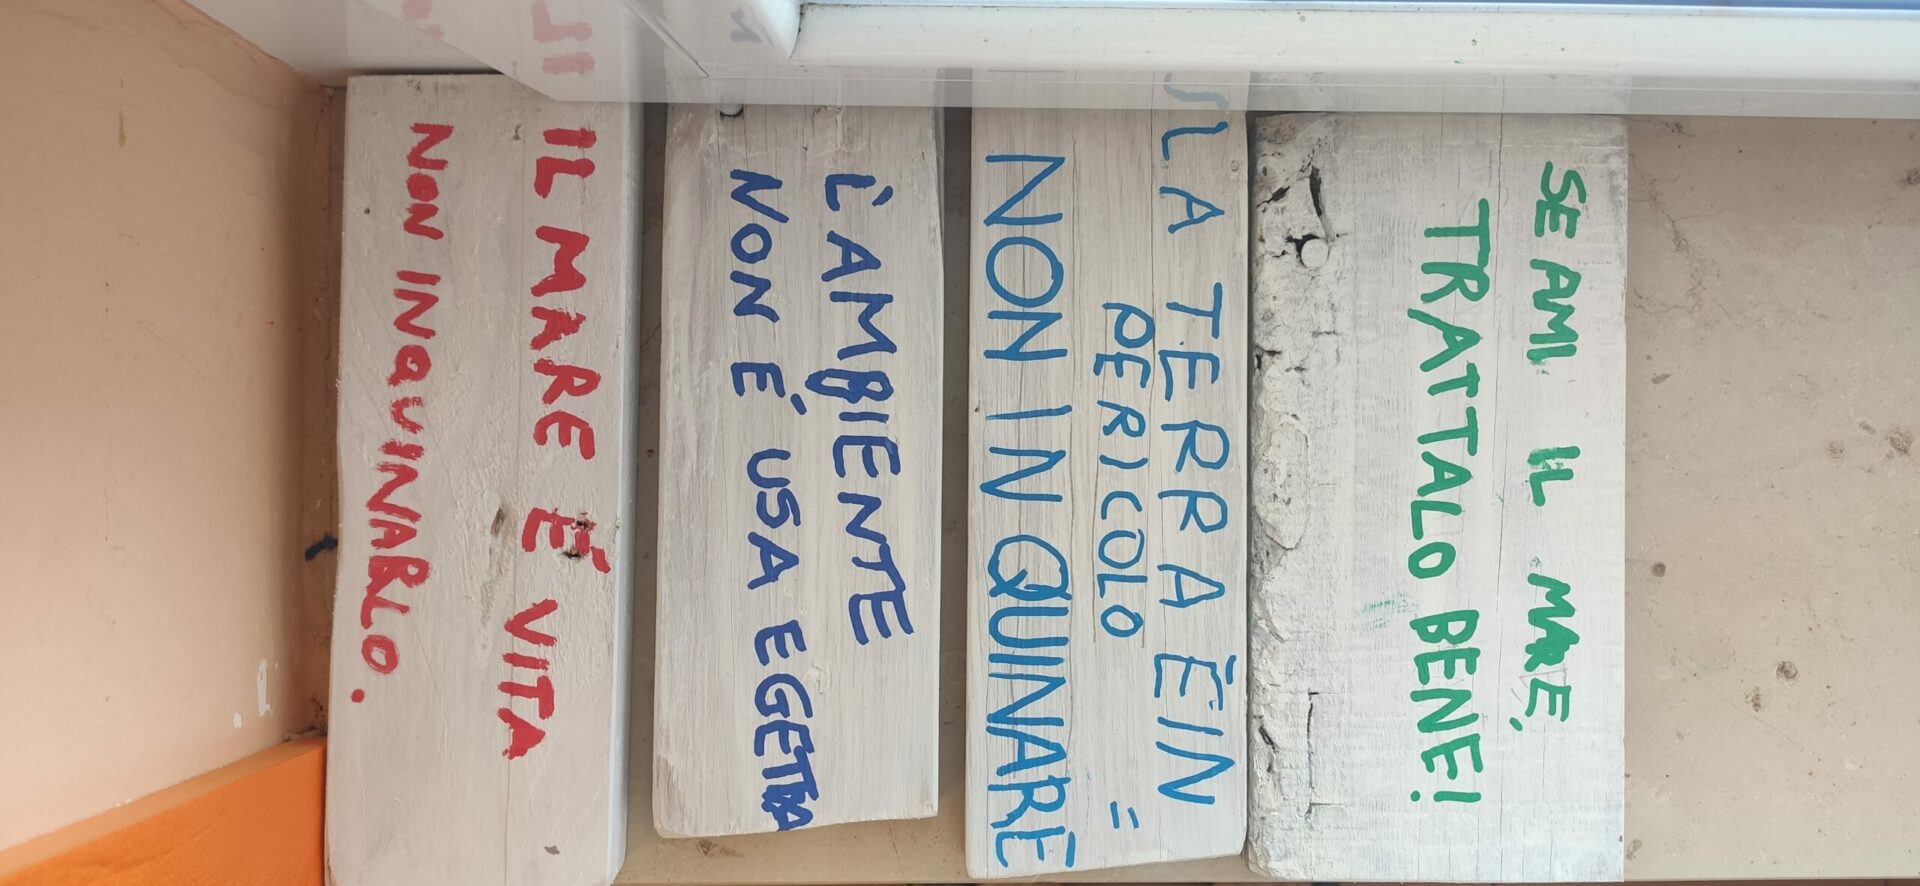 SE AMI IL MARE,
TRATTALO BENE!
LA TERRA È IN
PERICOLO =
NON INQUINARE
L'AMBIENTE
NON E' USA E GETTA
IL MARE É VITA
NON INQUINARLO.